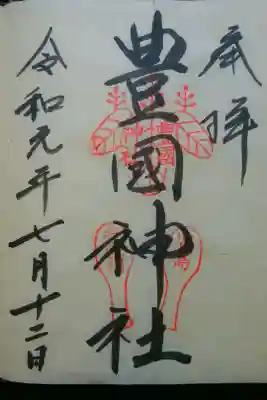 奉拝
豊國神社
令和元年七月十二日